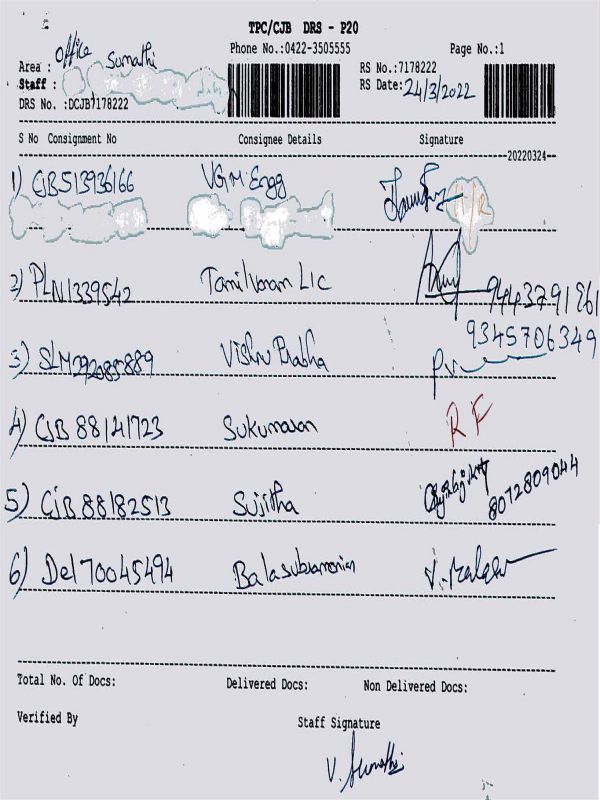 TPC/CJB DRS - P20
Phone No.:0422-3505555 Page No.:1
Area : Office Sumathi RS No.:7178222
Staff : RS Date: 24/3/2022
DRS No. :DCJB7178222
S No Consignment No Consignee Details Signature
20220324
1) CJB513936166 VGM Engg
2) PLN1339542 Tamilvanam LIC 9443791861
9345706349
3) SLM392085889 Vishnu Prabha
4) CJB 88141723 Sukumaran RF
5) CJB 88182513 Sujitha 8072809044
6) Del 70045494 Balasubramanian
Total No. Of Docs: Delivered Docs: Non Delivered Docs:
Verified By Staff Signature
V. Sumathi